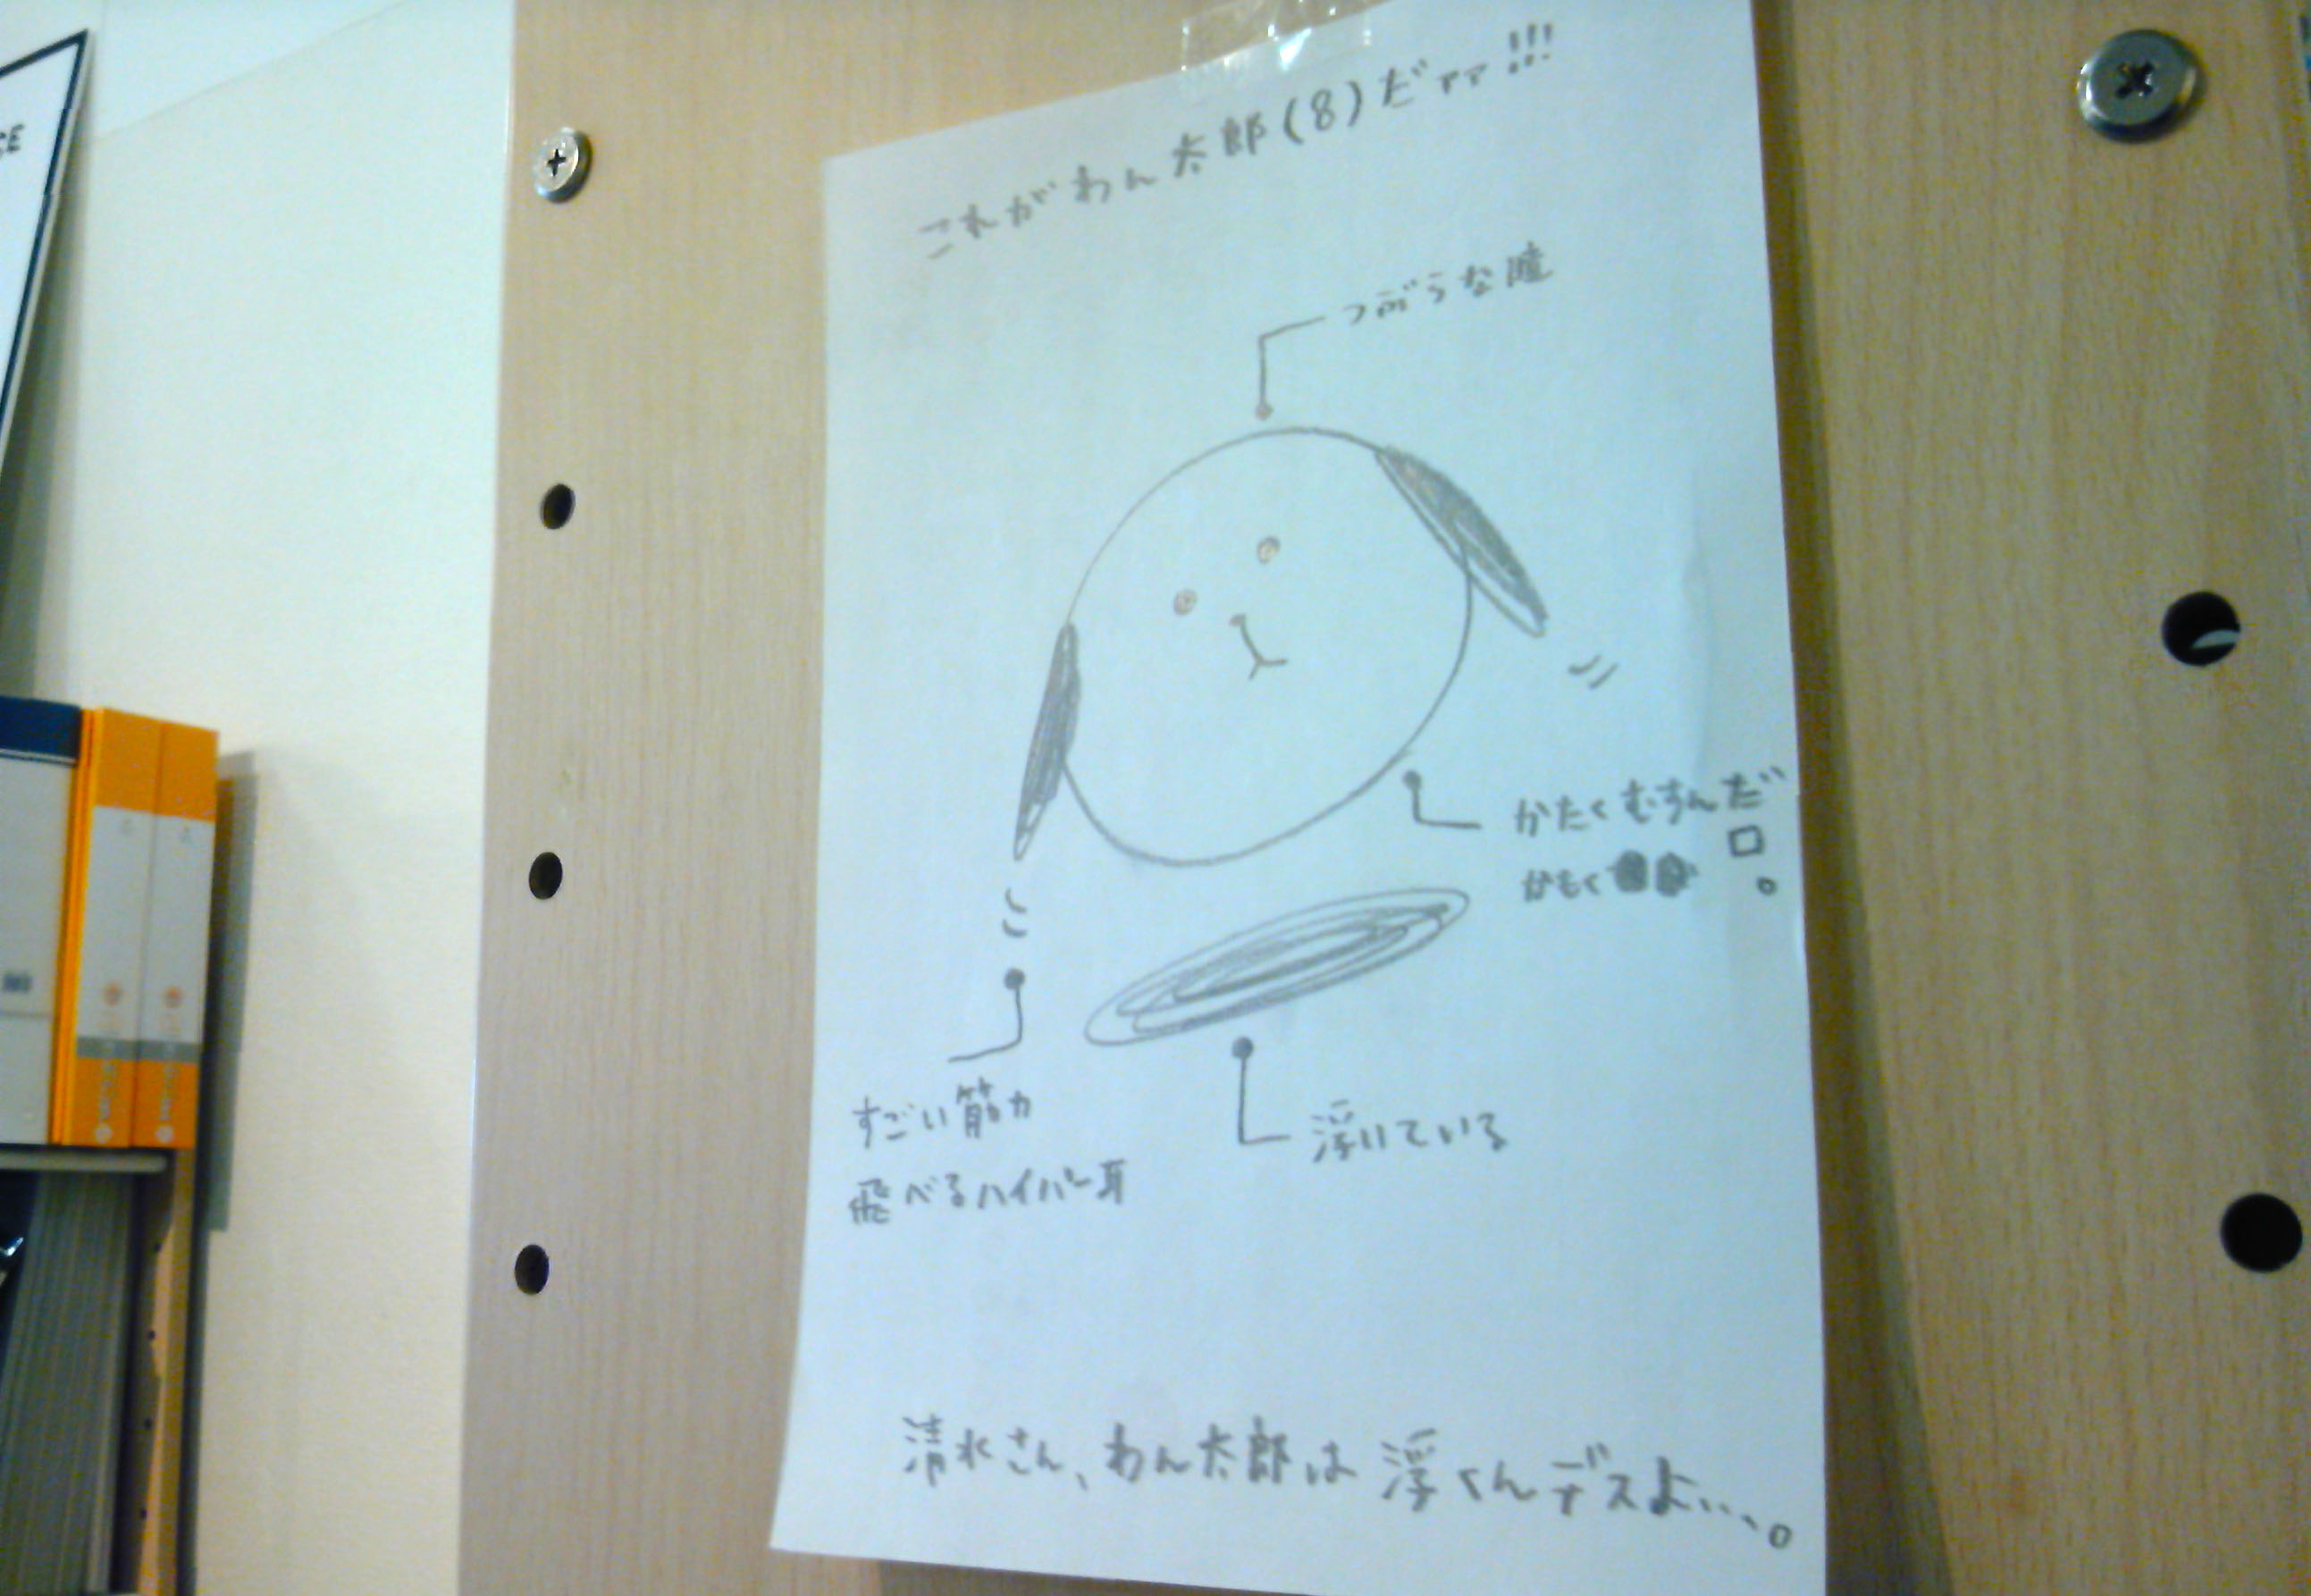 これがわん太郎(8)だァァ!!!
つぶらな瞳
かたくむすんだ
口。
かもく
すごい筋力
飛べるハイパー耳
浮いている
清水さん、わん太郎は浮くんデスよ...。